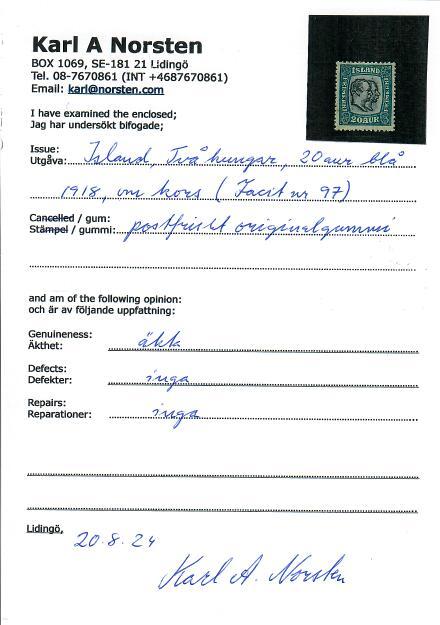 Karl A Norsten
BOX 1069, SE-181 21 Lidingö
Tel. 08-7670861 (INT +4687670861)
Email: karl@norsten.com
ISLAND
20 AUR
I have examined the enclosed;
Jag har undersökt bifogade;
Issue:
Utgåva: Island, Två kungar, 20 aur blå
1918, vm kors (Facit nr 97)
Cancelled / gum:
Stämpel / gummi: postfriskt originalgummi
and am of the following opinion:
och är av följande uppfattning:
Genuineness:
Äkthet: äkta
Defects:
Defekter: inga
Repairs:
Reparationer: inga
Lidingö,
20.8.24
Karl A. Norsten